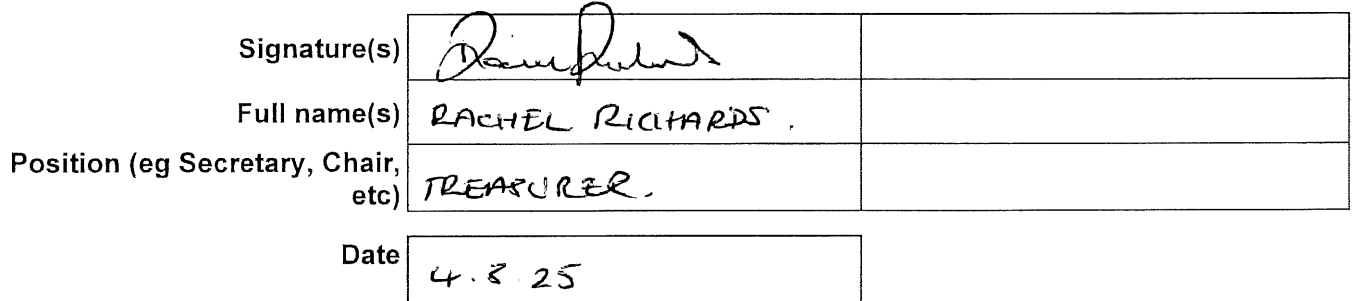 Signature(s)
Full name(s) RACHEL RICHARDS.
Position (eg Secretary, Chair,
etc) TREASURER.
Date
4.8.25